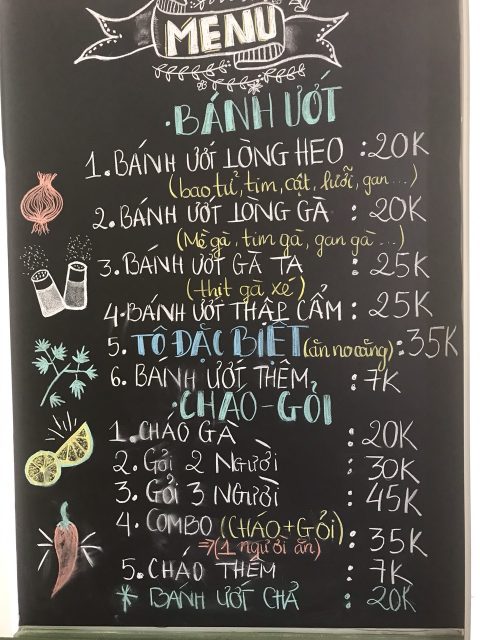 MENU
·BÁNH ƯỚT
1. BÁNH ƯỚT LÒNG HEO : 20K
(bao tử, tim, cật, lưỡi, gan...)
2. BÁNH ƯỚT LÒNG GÀ : 20K
(Mề gà, tim gà, gan gà...)
3. BÁNH ƯỚT GÀ TA : 25K
(thịt gà xé)
4. BÁNH ƯỚT THẬP CẨM : 25K
5. TÔ ĐẶC BIỆT (ăn no căng) : 35K
6. BÁNH ƯỚT THÊM : 7K
·CHÁO-GỎI
1. CHÁO GÀ : 20K
2. GỎI 2 NGƯỜI : 30K
3. GỎI 3 NGƯỜI : 45K
4. COMBO (CHÁO+GỎI) : 35K
⇒ (1 người ăn)
5. CHÁO THÊM : 7K
* BÁNH ƯỚT CHẢ : 20K